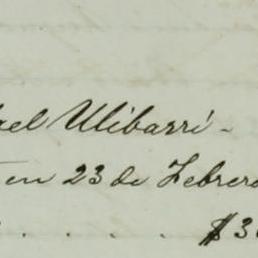 ael Ulibarrí -
en 23 de Febrero
. . . . $3